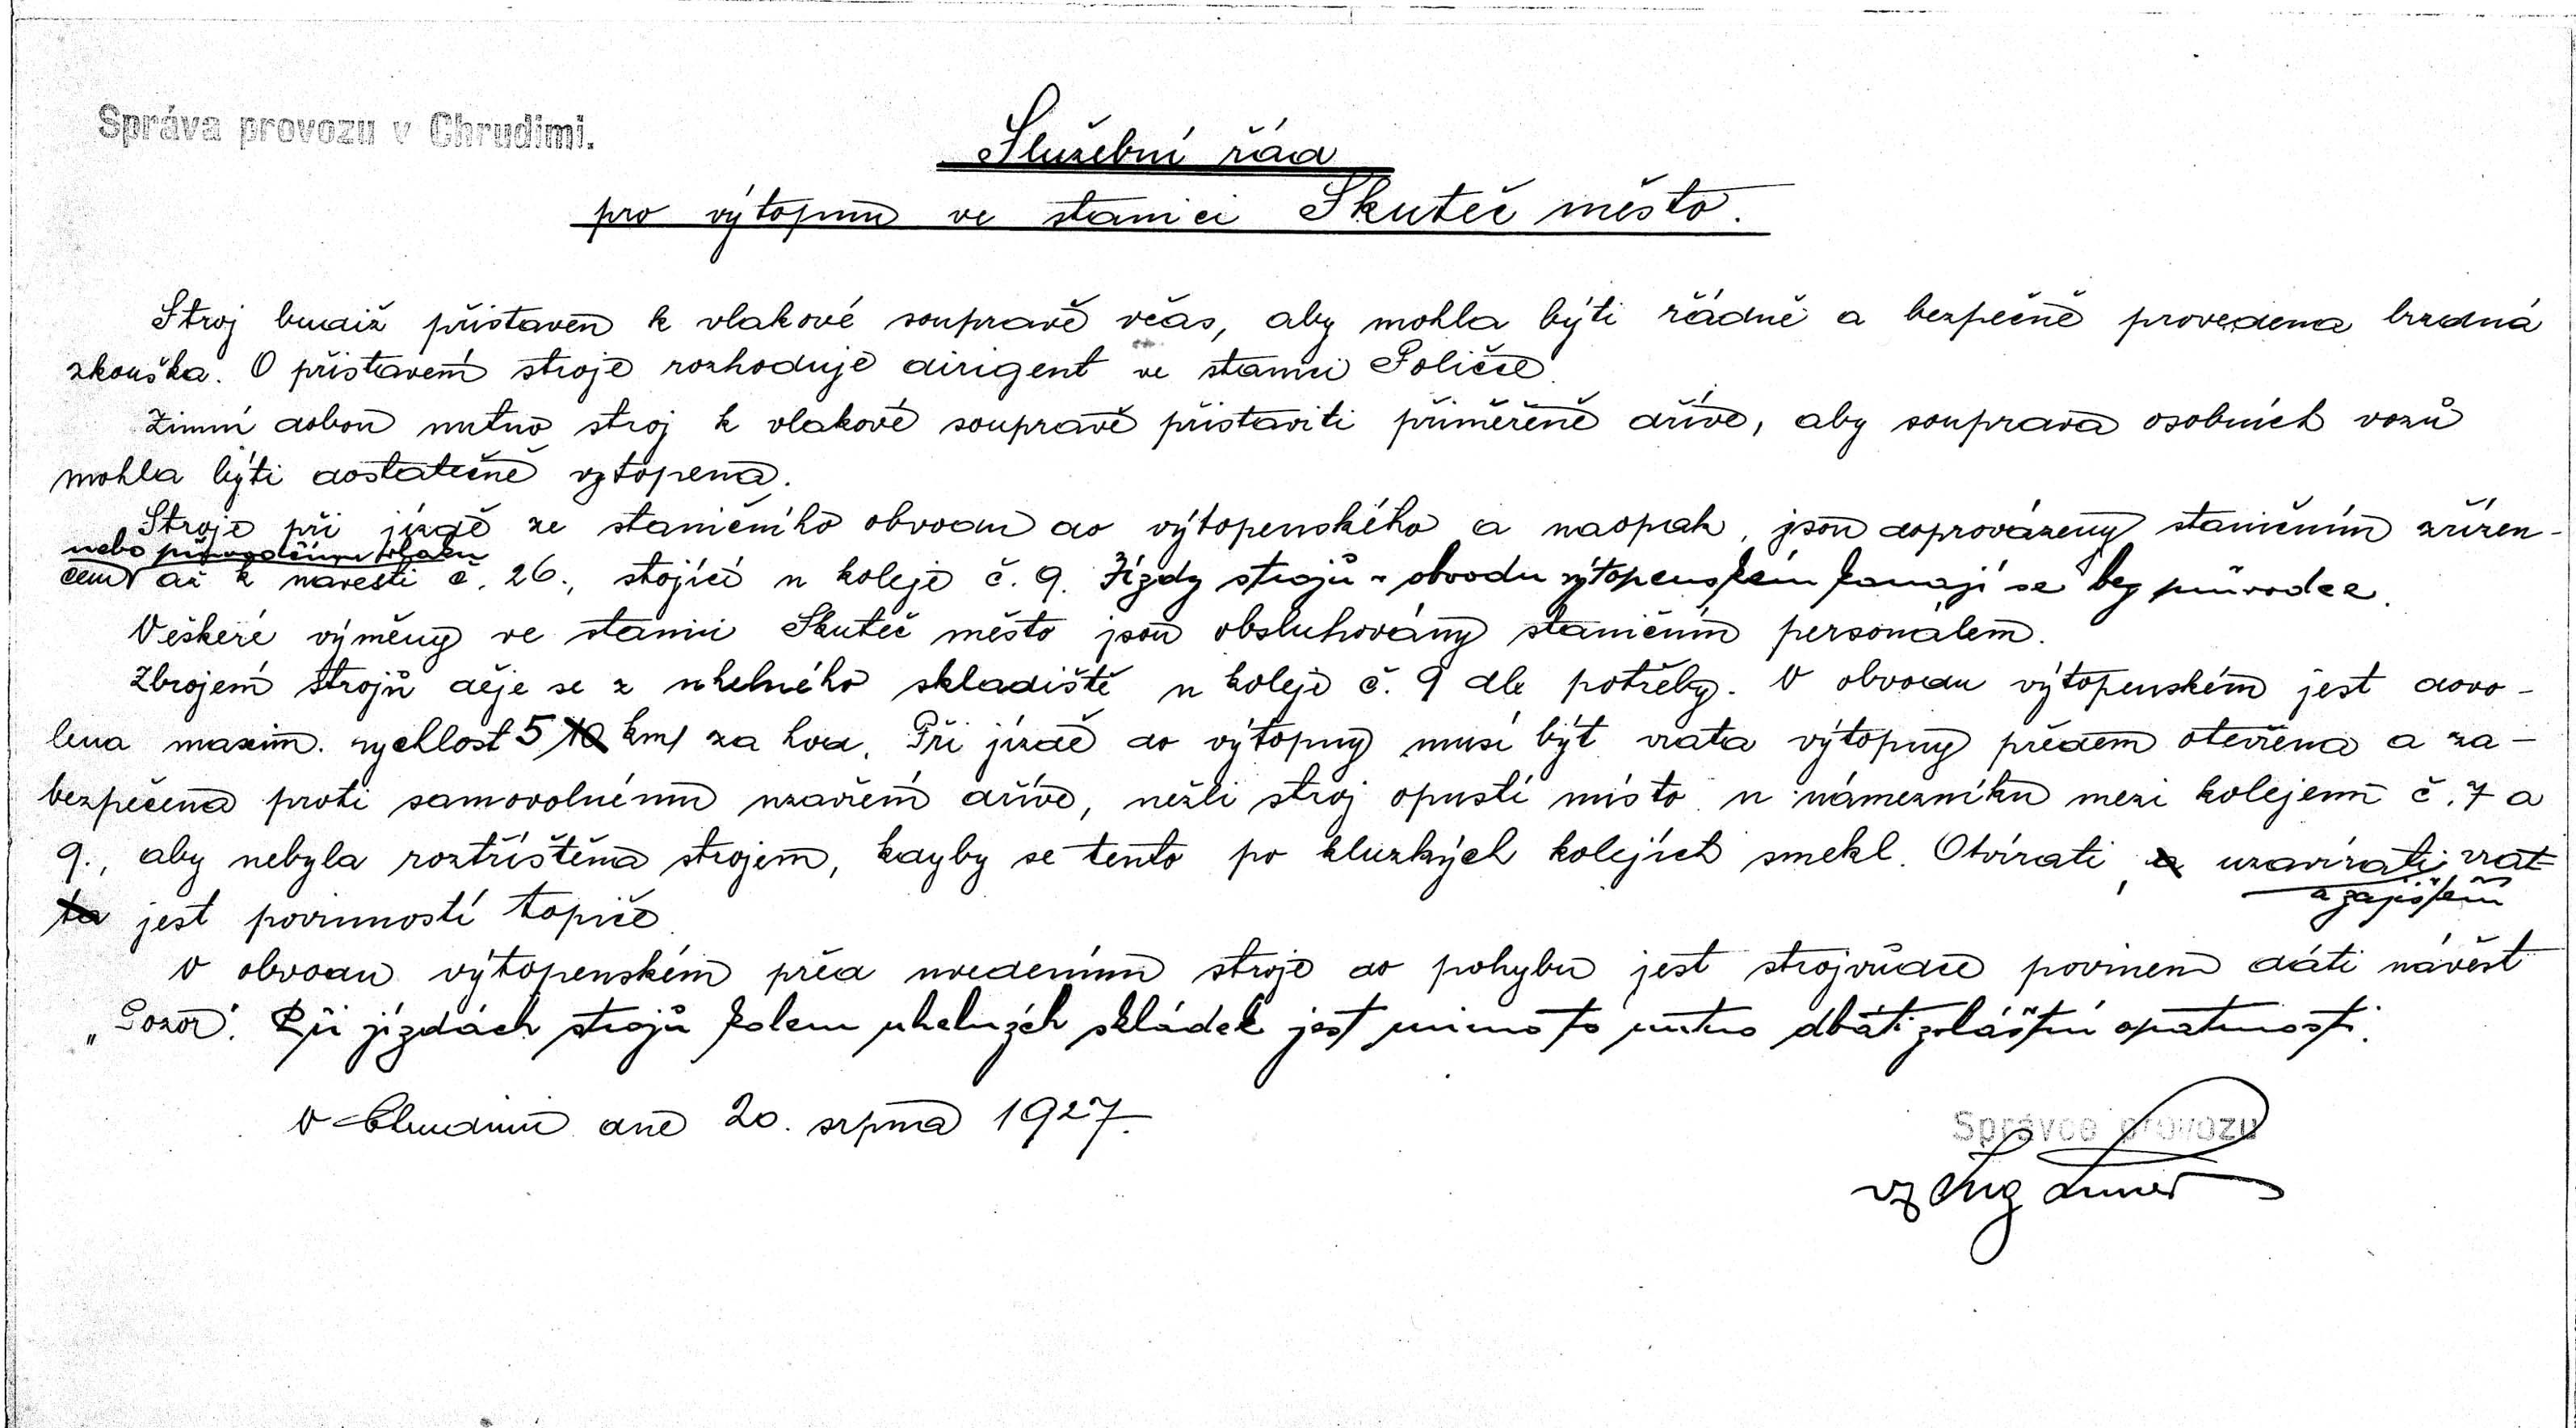 Správa provozu v Chrudimi.
Služební řád
pro výtopnu ve stanici Skuteč město.
Stroj budiž přistaven k vlakové soupravě včas, aby mohla býti řádně a bezpečně provedena brzdná
zkouška. O přistavení stroje rozhoduje dirigent ve stanici Poličce.
Zimní dobou nutno stroj k vlakové soupravě přistaviti přiměřeně dříve, aby souprava osobních vozů
mohla býti dostatečně vytopena.
Stroje při jízdě ze staničního obvodu do výtopenského a naopak, jsou doprovázeny staničním zřízen-
nebo průvodčím vlaku
cem až k návěsti č. 26., stojící u koleje č. 9. Jízdy strojů v obvodu výtopenském konají se bez průvodce.
Veškeré výměny ve stanici Skuteč město jsou obsluhovány staničním personálem.
Zbrojení strojů děje se z uhelného skladiště u koleje č. 9 dle potřeby. V obvodu výtopenském jest dovo-
lena maxim. rychlost 5 10 km/ za hod. Při jízdě do výtopny musí být vrata výtopny předem otevřena a za-
bezpečena proti samovolnému uzavření dříve, nežli stroj opustí místo u námezníku mezi kolejemi č. 7 a
9., aby nebyla roztříštěna strojem, kdyby se tento po kluzkých kolejích smekl. Otvírati, a uzavírati vrat-
a zajištění
ta jest povinností topiče.
V obvodu výtopenském před uvedením stroje do pohybu jest strojvůdce povinen dáti návěst
„Pozor“. Při jízdách strojů kolem uhelných skládek jest mimo to nutno dbáti zvláštní opatrnosti.
V Chrudimi dne 20. srpna 1927.
Správce provozu
vz Ing